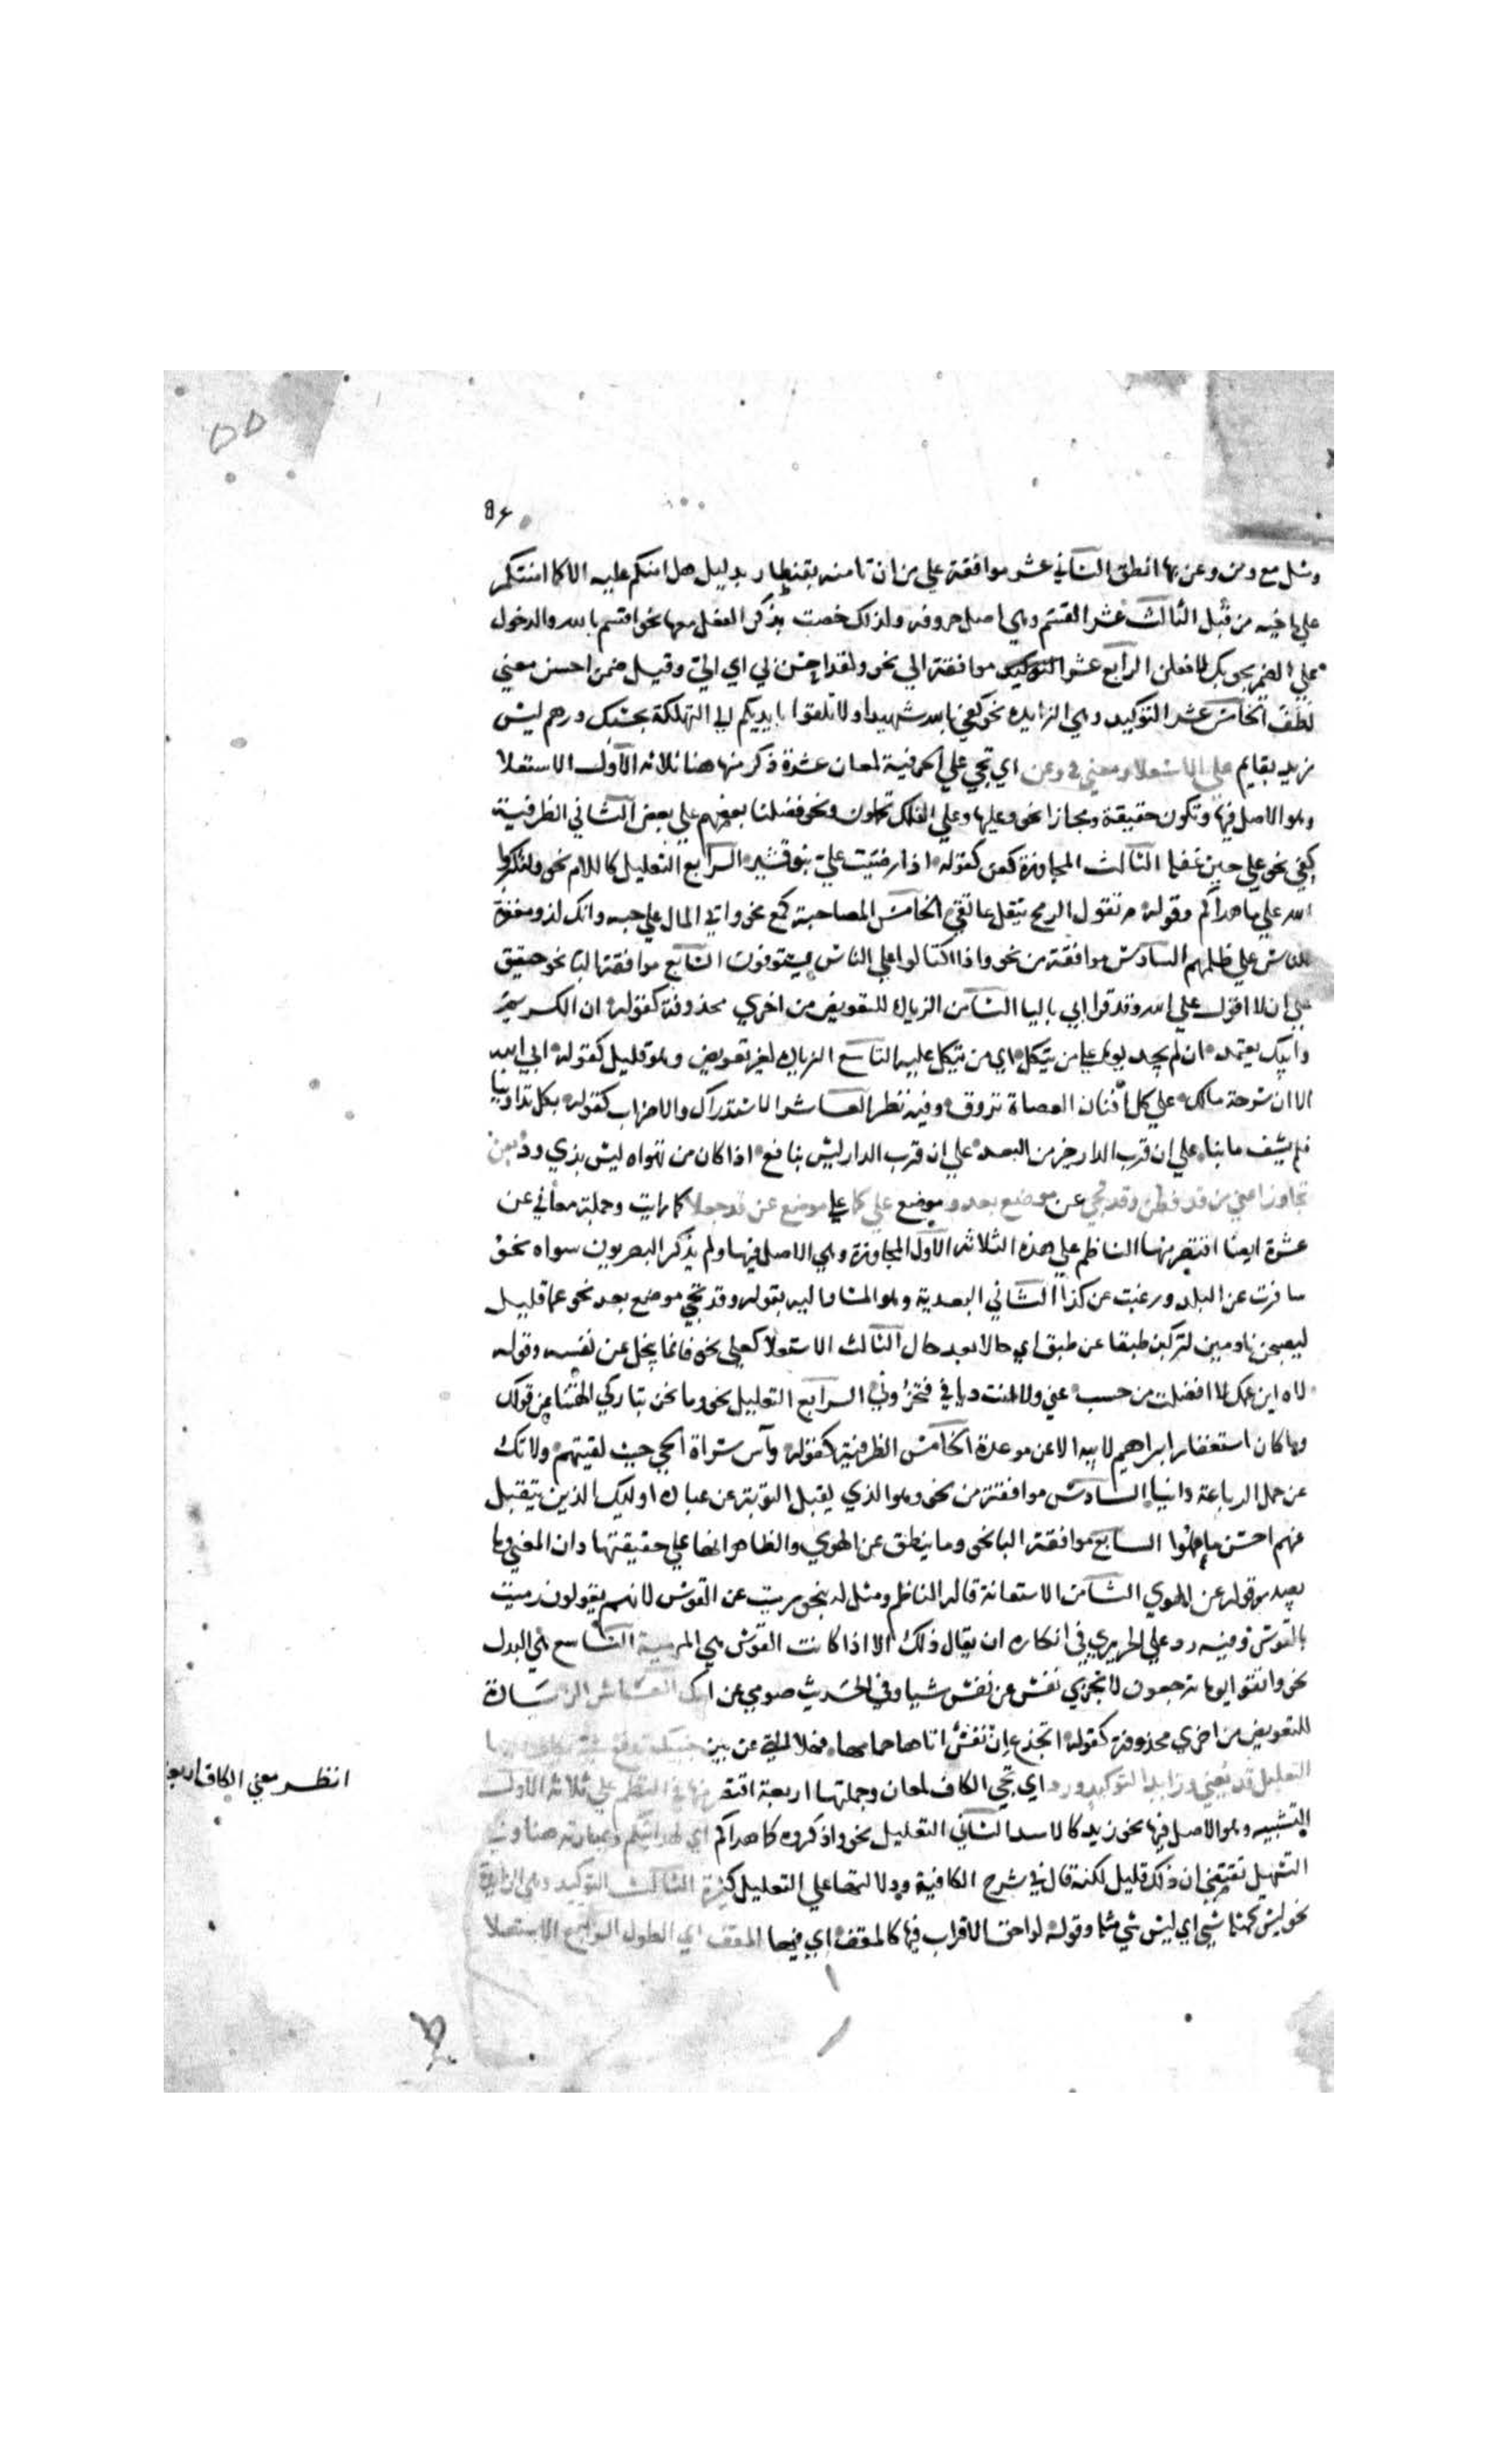 ومثل مع ومن وعن بها انطق الثاني عشر موافقة علي من ان تامنه بقنطار بدليل هل امنكم عليه الا كما امنتكم
علي اخيه من قبل الثالث عشر القسم وهي اصل حروفه ولذلك خصت بذكر الفعل معها نحو اقسم بالله والدخول
علي الضمير نحو بك لافعلن الرابع عشر موافقة الي نحو ولقد احسن بي اي الي وقيل ضمن احسن معني
لطف الخامس عشر التوكيد وهي الزايدة نحو كفي بالله شهيدا ولا تلقوا بايديكم الي التهلكة بحسبك درهم ليس
زيد بقايم علي للاستعلا ومعني في وعن اي تجي علي الحرفية لمعان عشرة ذكر منها هنا ثلاثة الاول الاستعلا
وهو الاصل فيها وتكون حقيقة ومجازا نحو وعليها وعلي الفلك تحملون ونحو فضلنا بعضهم علي بعض الثاني الظرفية
كفي نحو علي حين غفلة الثالث المجاوزة كعن كقوله اذا رضيت علي بنو قشير الرابع التعليل كاللام نحو ولتكبروا
الله علي ما هداكم وقوله م تقول الرمح يثقل عاتقي الخامس المصاحبة كمع نحو واتي المال علي حبه وانك لذو مغفرة
للناس علي ظلمهم السادس موافقة من نحو واذا اكتالوا علي الناس يستوفون السابع موافقة البا نحو حقيق
علي ان لا اقول علي الله وقد قرا ابي باليا الثامن الزيادة للتعويض من اخري محذوفة كقوله ان الكريم
وابيك يعتمد ان لم يجد يوما علي من يتكل اي من يتكل عليه التاسع الزيادة لغير تعويض وهو قليل كقوله ابي الله
الا ان سرحة مالك علي كل افنان العضاة تروق وفيه نظر العاشر الاستدراك والاضراب كقوله بكل تداوينا
فلم يشف ما بنا علي ان قرب الدار خير من البعد علي ان قرب الدار ليس بنافع اذا كان من تهواه ليس بذي ود بعن
تجاوزا عني من قد فطن وقد تجي عن موضع بعد وموضع علي كما علي موضع عن قد جعلا كما رايت وجملة معاني عن
عشرة ايضا اقتصر منها الناظم علي هذه الثلاثة الاول المجاوزة وهي الاصل فيها ولم يذكر البصريون سواه نحو
سافرت عن البلد ورغبت عن كذا الثاني البعدية وهو المشار اليه بقوله وقد تجي موضع بعد نحو عما قليل
ليصبحن نادمين لتركبن طبقا عن طبق اي حالا بعد حال الثالث الاستعلا كعلي نحو فانما يبخل عن نفسه وقوله
لاه ابن عمك لا افضلت من حسب عني ولا انت دياني فتخزوني الرابع التعليل نحو وما نحن بتاركي الهتنا عن قولك
وما كان استغفار ابراهيم لابيه الا عن موعدة الخامس الظرفية كقوله وآس سراة الحي حيث لقيتهم ولا تك
عن حمل الرباعة وانيا السادس موافقة من نحو وهو الذي يقبل التوبة عن عباده اوليك الذين يتقبل
عنهم احسن ما عملوا السابع موافقة البا نحو وما ينطق عن الهوي والظاهر انها علي حقيقتها وان المعني وما
يصدر قوله عن الهوي الثامن الاستعانة قاله الناظم ومثل له بنحو رميت عن القوس لانهم يقولون رميت
بالقوس وفيه رد علي الحريري في انكاره ان يقال ذلك الا اذا كانت القوس هي المرمية التاسع البدل
نحو واتقوا يوما ترجعون لا تجزي نفس عن نفس شيا وفي الحديث صومي عن امك العاشر الزيادة
للتعويض من اخري محذوفة كقوله اتجزع ان نفس اتاها حمامها فهلا التي عن بين جنبيك تدفع
التعليل قد يعني وزايدا لتوكيد ورد اي تجي الكاف لمعان وجملتها اربعة اقتصر منها في النظم علي ثلاثة الاول
التشبيه وهو الاصل فيها نحو زيد كالاسد الثاني التعليل نحو واذكروه كما هداكم اي لهدايتكم وعبارته هنا وفي
التسهيل تقتضي ان ذلك قليل لكنه قال في شرح الكافية ودلالتها علي التعليل كثيرة الثالث التوكيد وهي الزايدة
نحو ليس كمثله شي اي ليس شي مثله وقوله لواحق الاقراب فيها كالمقق اي فيها المقق اي الطول الرابع الاستعلا
انظر معني الكاف اربعة